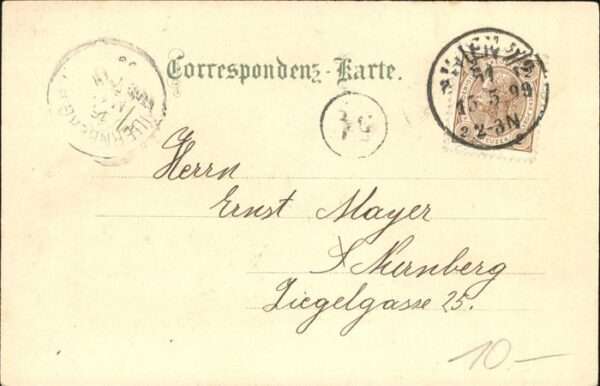 Correspondenz-Karte.
WIEN 5/2
51
15.5.99
2-3N
Herrn
Ernst Mayer
Nürnberg
Ziegelgasse 25.
10-